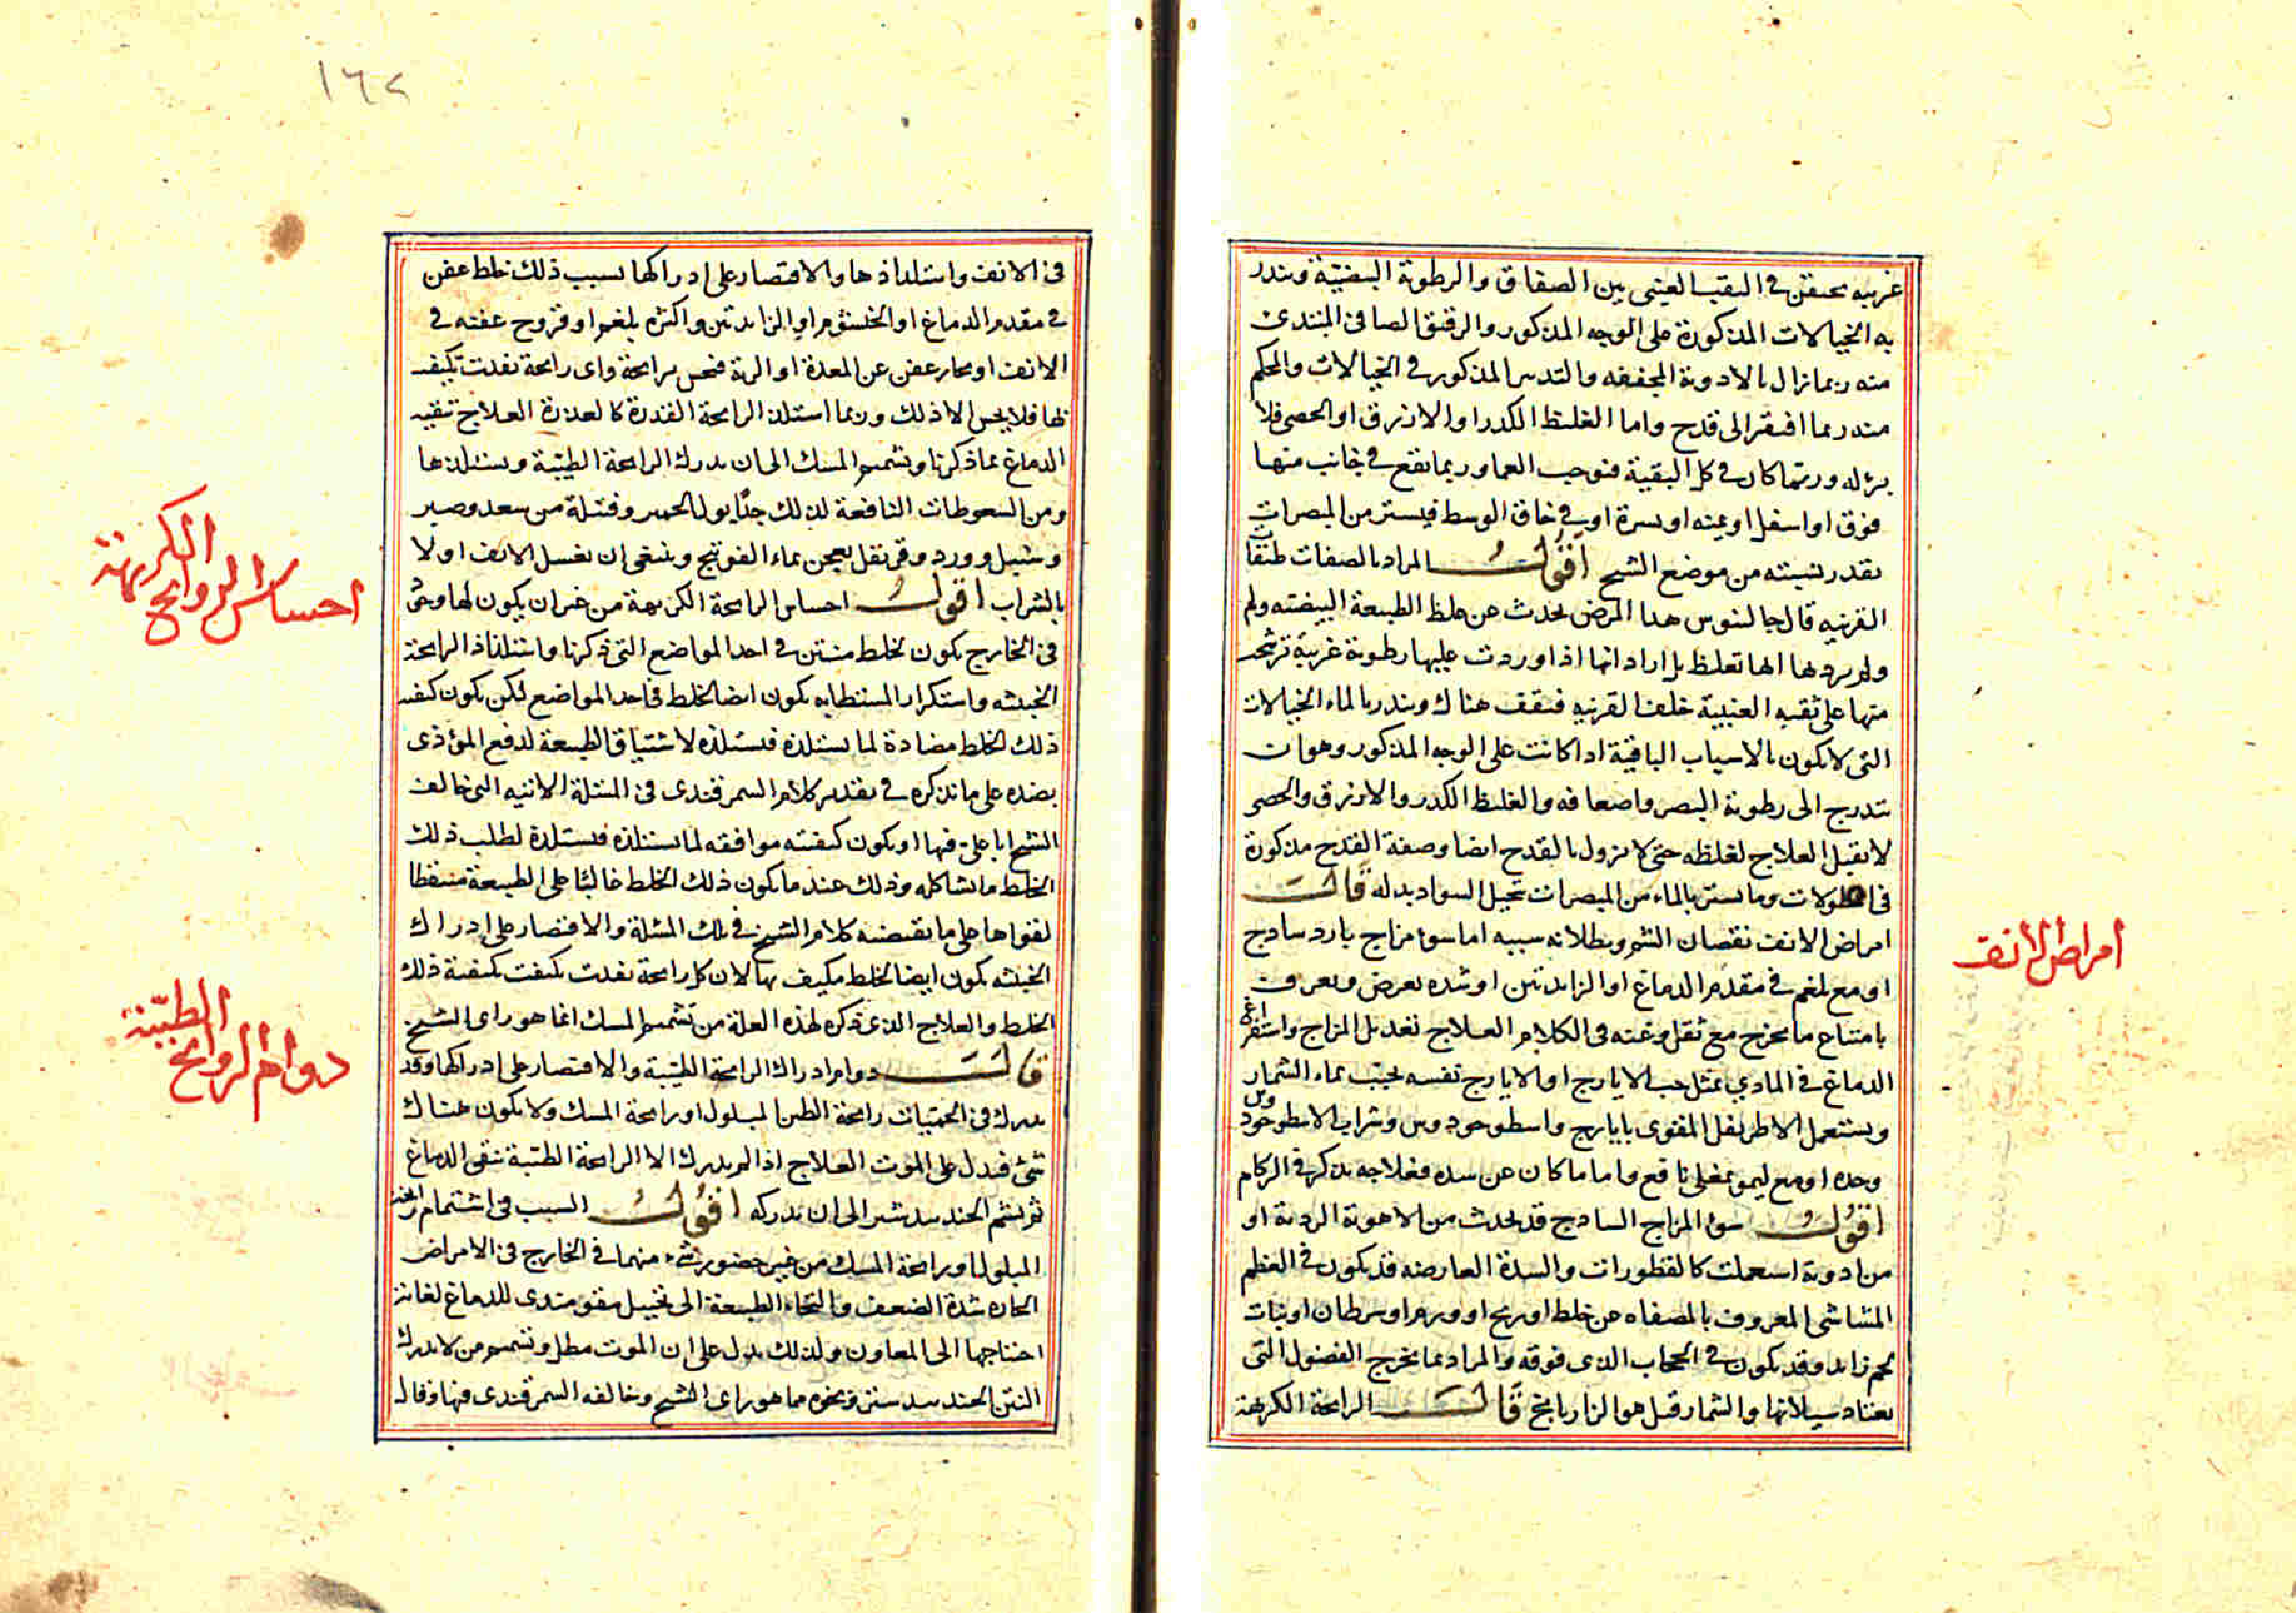 غريبه محتقن في الثقب العيني بين الصفاق والرطوبة البيضية وينذر
به الخيالات المذكورة على الوجه المذكور والرقيق الصافي المبتدى
منه ربما زال بالادوية المجففه والتدبير المذكور في الخيالات والمحكم
منه ربما افتقر الى قدح واما الغليظ الكدر او الازرق او الجصي فلا
برؤ له وربما كان في كل الثقبة فيوجب العما وربما يقع في جانب منها
فوق او اسفل او يمنه او يسرة او في حاق الوسط فيستر من المبصرات
بقدر نسبته من موضع الشبح اقول المراد بالصفات طبقات
القرنيه قال جالينوس هذا المرض يحدث عن غلظ الطبيعة البيضيه ولم
ولم يرد بها انها تغلظ بل اراد انها اذا وردت عليها رطوبة غريبة ترشحت
منها على ثقبه العنبية خلف القرنيه فتقف هناك وينذر بالماء الخيالات
التي لا تكون بالاسباب الباقية اذا كانت على الوجه المذكور وهو ان
يتدرج الى رطوبة البصر واضعافه والغليظ الكدر والازرق والجصي
لا يقبل العلاج لغلظه حتى لا يزول بالقدح ايضا وصفة القدح مذكورة
في المطولات وما يستر بالماء من المبصرات تخيل السواد بدله قال
امراض الانف نقصان الشم وبطلانه سببه اما سوء مزاج بارد ساذج
او مع بلغم في مقدم الدماغ او الزايدتين او شده تعرض ويعرف
بامتناع ما يخرج مع ثقل وغنه في الكلام العلاج تعديل المزاج واستفراغ
الدماغ في المادي بمثل حب الايارج او الايارج نفسه يحبب بماء الشمار
ويستعمل الاطريفل المقوى بايارج واسطوخودوس وشراب الاسطوخودوس
وحده او مع ليمو بمغلى نافع واما ما كان عن سده فعلاجه يذكر في الزكام
اقول سوء المزاج الساذج قد يحدث من الاهوية الردية او
من ادوية استعملت كالقطورات والسدة العارضه قد يكون في العظم
المشاشي المعروف بالمصفاه عن خلط او ريح او ورم او سرطان او نبات
لحم زايد وقد يكون في الحجاب الذي فوقه والمراد بما يخرج الفضول التي
يعتاد سيلانها والشمار قيل هو الرازيانج قال الرايحة الكريهة
امراض الانف
١٦٢
في الانف واستلذاذها والاقتصار على ادراكها بسبب ذلك خلط عفن
في مقدم الدماغ او الخيشوم او الزايدتين واكثره بلغم او قروح عفنه في
الانف او بخار عفن عن المعدة او الرية فيحس برايحة واى رايحة نفذت تكيف
بها فلا يحس الا ذلك وربما استلذ الرايحة القذرة كالعذرة العلاج تنقيه
الدماغ بما ذكرنا وتشميم المسك الى ان يدرك الرايحة الطيبة ويستلذها
ومن السعوطات النافعة لذلك جدا بول الحمير وفتيلة من سعد وصبر
وسنبل وورد وقرنفل يعجن بماء الفوتنج وينبغي ان يغسل الانف اولا
بالشراب اقول احساس الرايحة الكريهة من غير ان يكون لها وجود
في الخارج يكون لخلط منتن في احد المواضع التي ذكرنا واستلذاذ الرايحة
الخبيثه واستكراه المستطابه يكون ايضا لخلط في احد المواضع لكن يكون كيفيه
ذلك الخلط مضادة لما يستلذه فيستلذه لاشتياق الطبيعة لدفع المؤذى
بضده على ما نذكره في تقدير كلام السمرقندى في المسئلة الاتيه التي خالف
الشيخ ابا على فيها او يكون كيفيته موافقه لما يستلذه فيستلذه لطلب ذلك
الخلط ما يشاكله وذلك عندما يكون ذلك الخلط غالبا على الطبيعة مسقطا
لقواها على ما يقتضيه كلام الشيخ في تلك المسئلة والاقتصار على ادراك
الخبيثه يكون ايضا لخلط مكيف بها لان كل رايحة نفذت تكيفت بكيفية ذلك
الخلط والعلاج الذي ذكره لهذه العلة من تشميم المسك انما هو راى الشيخ
قال دوام ادراك الرايحة الطيبة والاقتصار على ادراكها وقد
يدرك في الحميات رايحة الطين المبلول او رايحة المسك ولا يكون هناك
شئ فيدل على الموت العلاج اذا لم يدرك الا الرايحة الطيبة نقى الدماغ
ثم يشم الجندبيدستر الى ان يدركه اقول السبب في اشتمام رايحة
المبلول او رايحة المسك من غير حضور شيء منهما في الخارج في الامراض
الحاره شدة الضعف والتجاء الطبيعة الى تخييل مقو مندى للدماغ لغاية
احتياجها الى المعاون ولذلك يدل على ان الموت مطل وتشميم من لا يدرك
النتن الجندبيدستر ونحوه مما هو راى الشيخ وخالفه السمرقندى فيها وقال
احساس الروايح الكريهة
دوام الروايح الطيبة